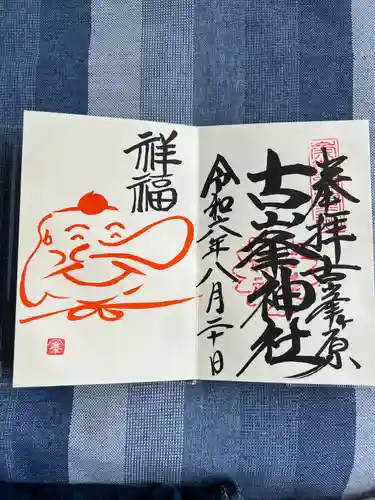 奉拝古峯ヶ原
古峯神社
令和六年八月二十日
祥福